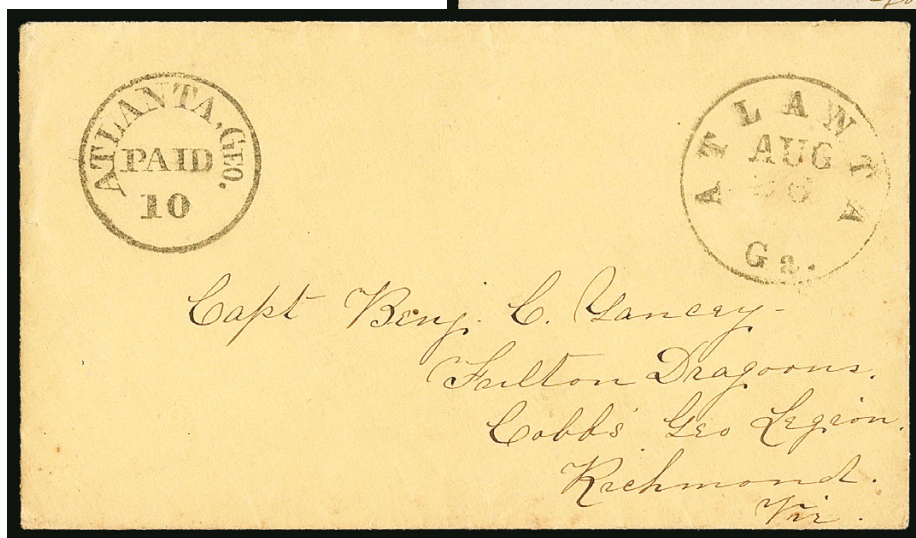 ATLANTA, GEO.
PAID
10
ATLANTA
AUG
Ga.
Capt Benj. C. Yancey
Fulton Dragoons.
Cobb's Geo Legion.
Richmond.
Vir.